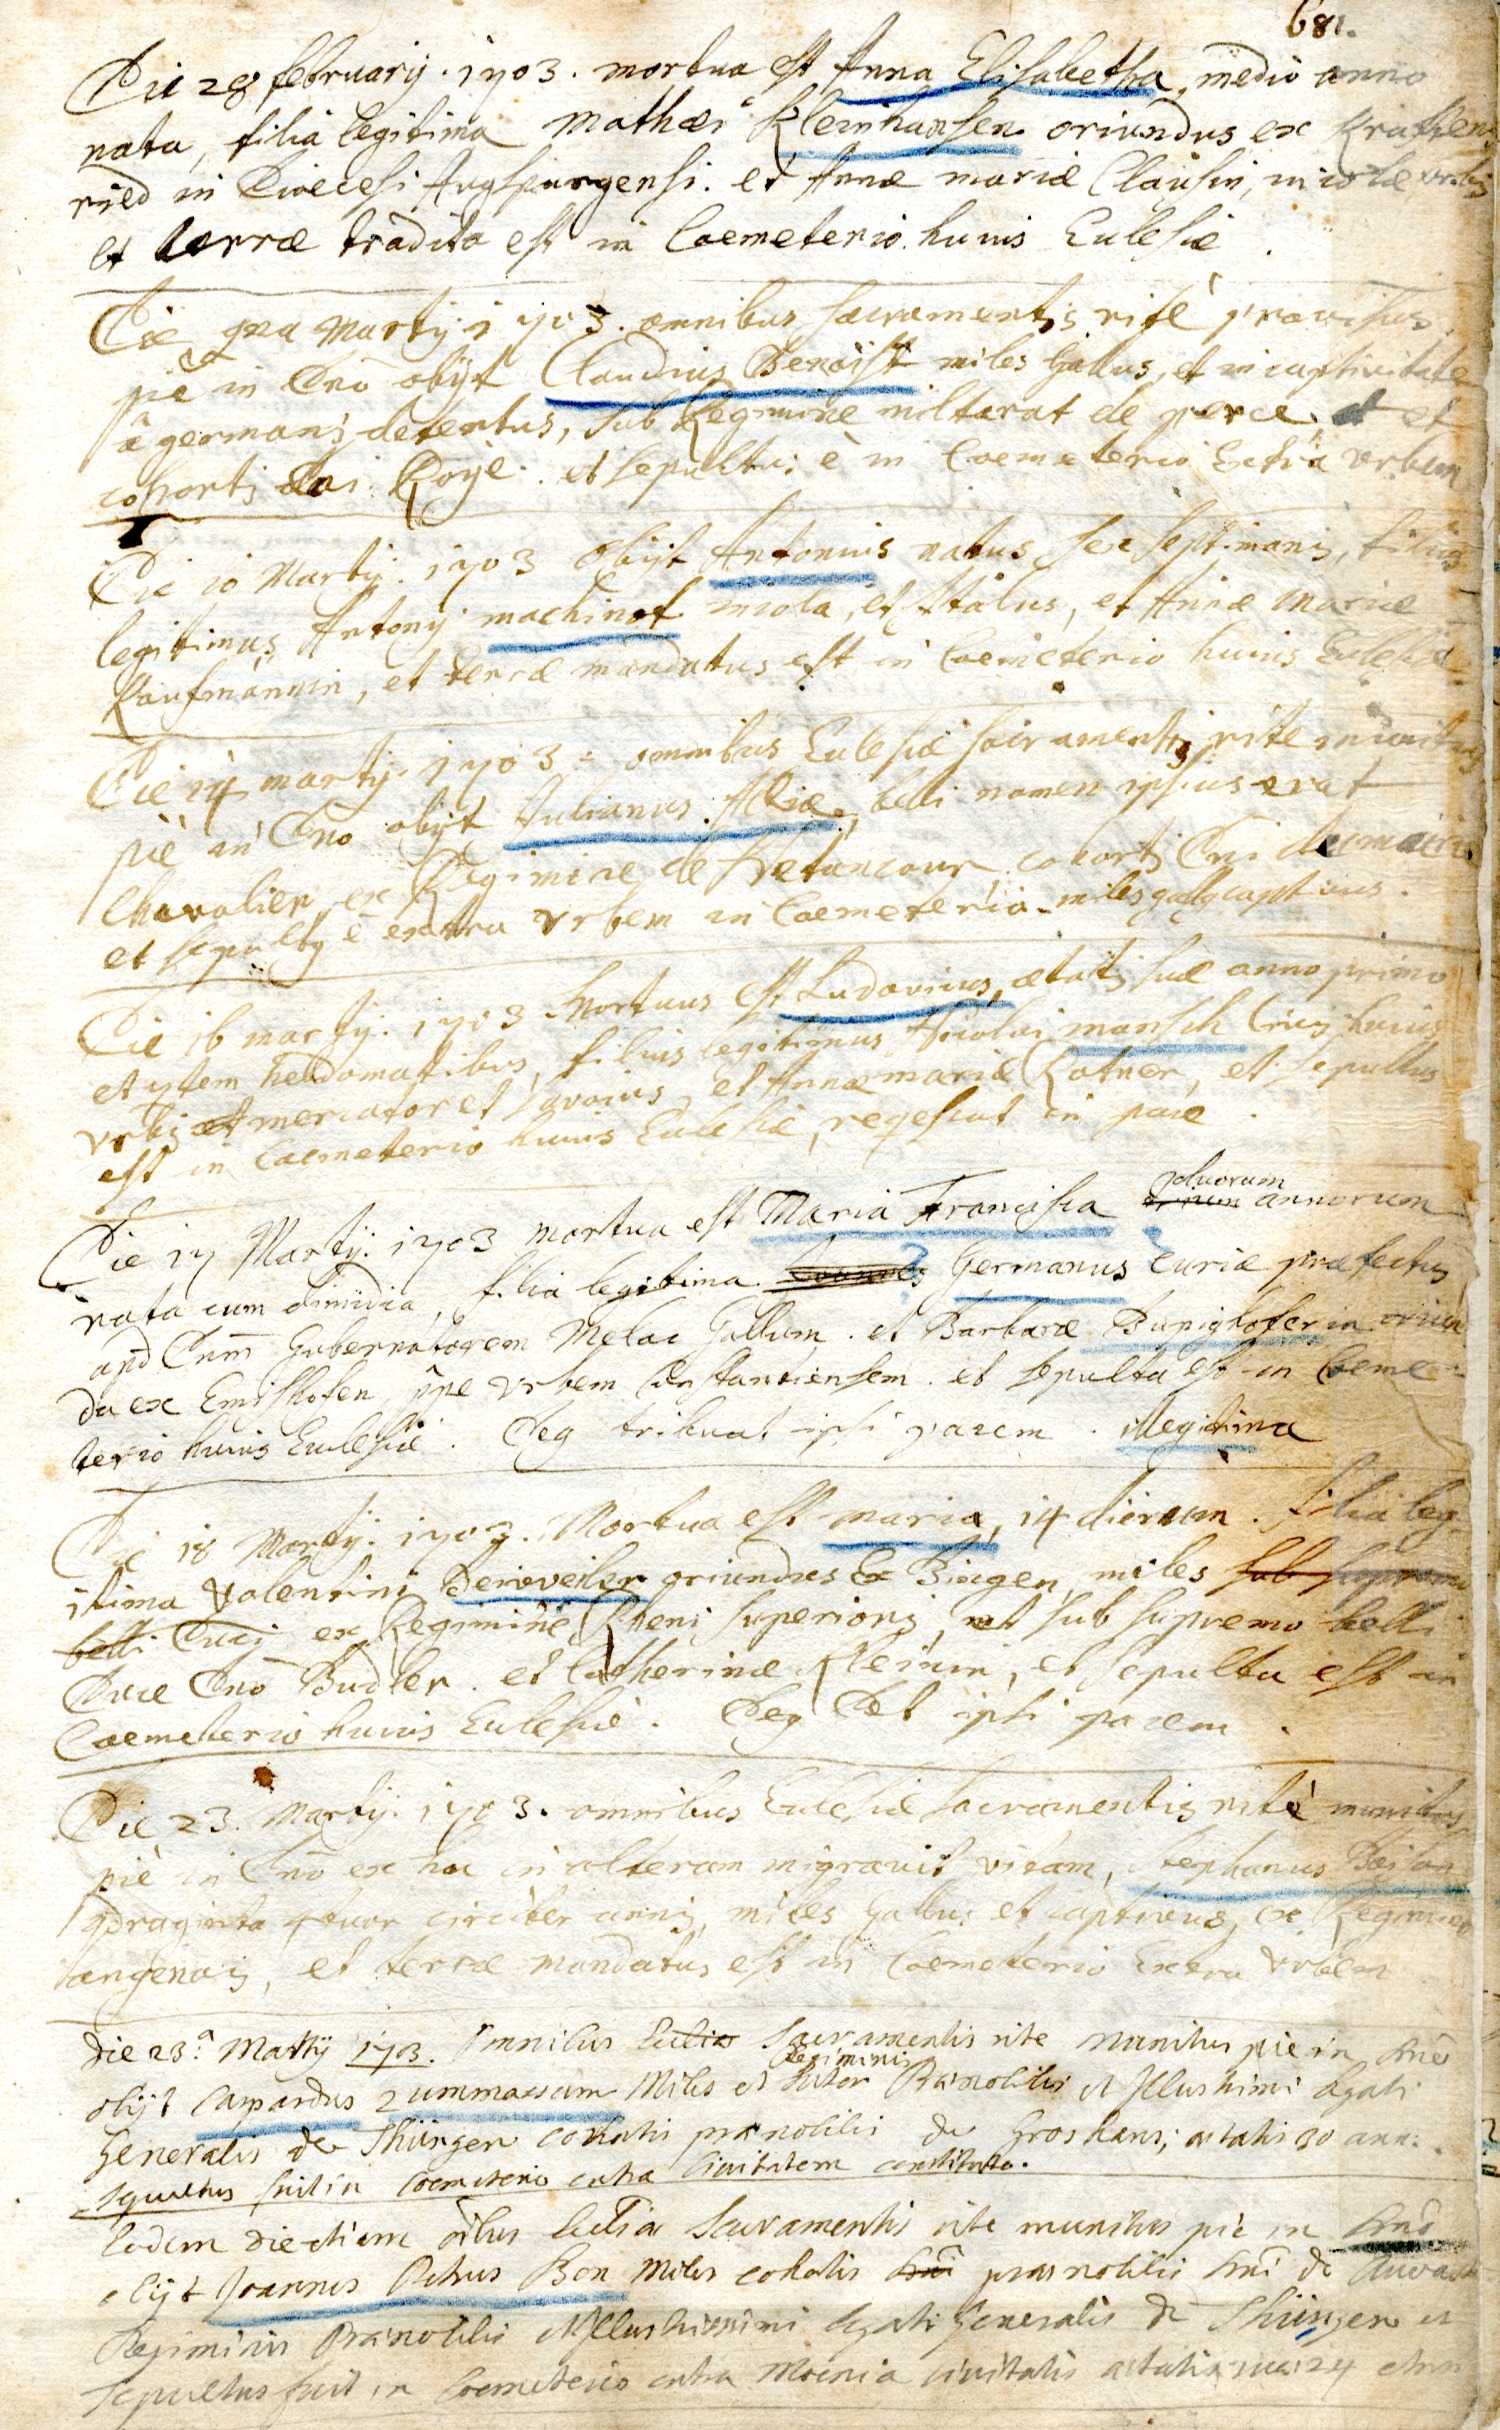 681.
Die 28 februarij. 1703. mortua est Anna Elisabetha, medio anno
nata, filia legitima Mathæi Kleinhansen oriundus ex
ried in Diœcesi Augspurgensi. et Annæ mariæ Clausin, incolæ urbis
et terræ tradita est in Coemeterio huius Eclesiæ.
Die 9na Martij 1703. omnibus sacramentis rite provisus
piè in Dno obijt Claudius Benoist miles Gallus, et in captivitate
â germanis detentus, sub Regimine militarat de perce et
cohortis doi. Roye. et sepultus ê in Coemeterio Extra Urbem
Die 10 Martij. 1703 obijt Antonius natus sex septimanis, filius
legitimus Antonij machinot incola, et Italus, et Annæ Mariæ
Kaufmannin, et terræ mandatus est in Coemeterio huius Eclesiæ
Die 14 martij. 1703. omnibus Eclesiæ sacramentis rite munitus
piè in Dno obijt Julianus Aliæ, belli nomen ipsius erat
Chavalier ex Regimine de Betancour cohortis Dni
et sepultus ê extra Urbem in Coemeterio. miles gallus captivus.
Die 16 martij. 1703. Mortuus est Ludovicus, ætatis suæ anno primo
et ytem hebdomatibus, filius legitimus Nicolai mansch Civis huius
Urbis et mercator et Savoius, et Annæ mariæ Rotner, et sepultus
est in Coemeterio huius Eclesiæ, reqescat in pace.
Die 17 Martij. 1703 mortua est Maria Francisca duorum annorum
nata cum dimidia, filia legitima Germanus Curiæ præfectus
apd Dnm Gubernatorem Melac Gallum. et Barbaræ Bupighoferin oriun
da ex Emishofen ppe Urbem Constantiensem. et sepulta est in Coeme-
terio huius Eclesiæ. Deg tribuat ipsi pacem. illegitima
Die 18 Martij. 1703. Mortua est maria, 14 dierum. filia leg-
itima Valentini Derieveiler oriundus Ex Bingen, miles sub supremo
belli Ducis ex Regimine Rheni superioris, et sub supremo belli
Duce Dno Budler. et Catherinæ Kleinin, et sepulta est in
Coemeterio huius Eclesiæ. Deg Det ipsi pacem.
Die 23. Martij. 1703. omnibus Eclesiæ sacramentis ritè munitus
piè in Dno ex hac in alteram migravit vitam, Stephanus
qdraginta 4tuor circiter annis, miles Gallus et captivus, ex Regimine
angenois, et terræ mandatus est in Coemeterio Extra Urbem
die 23â Martij 1703. Omnibus Eccliæ Sacramentis rite munitus pie in dno
obijt Casparus Zummassum Miles et Sutor Regiminis Prænobilis et Illustrimi Legati
Generalis de Thüngen cohortis prænobilis de Groshans, ætatis 30 ann.
sepultus fuit in Coemeterio extra Civitatem constituto.
Eodem die etiam oîbus Eccliæ Sacramentis rite munitus pie in dno
obijt Joannes Petrus Bon Miles cohortis dni prænobilis dni de
Regiminis Prænobilis et Illustrissimi Legati Generalis de Thüngen et
sepultus fuit in Coemeterio extra Moenia civitatis ætatis suæ 24